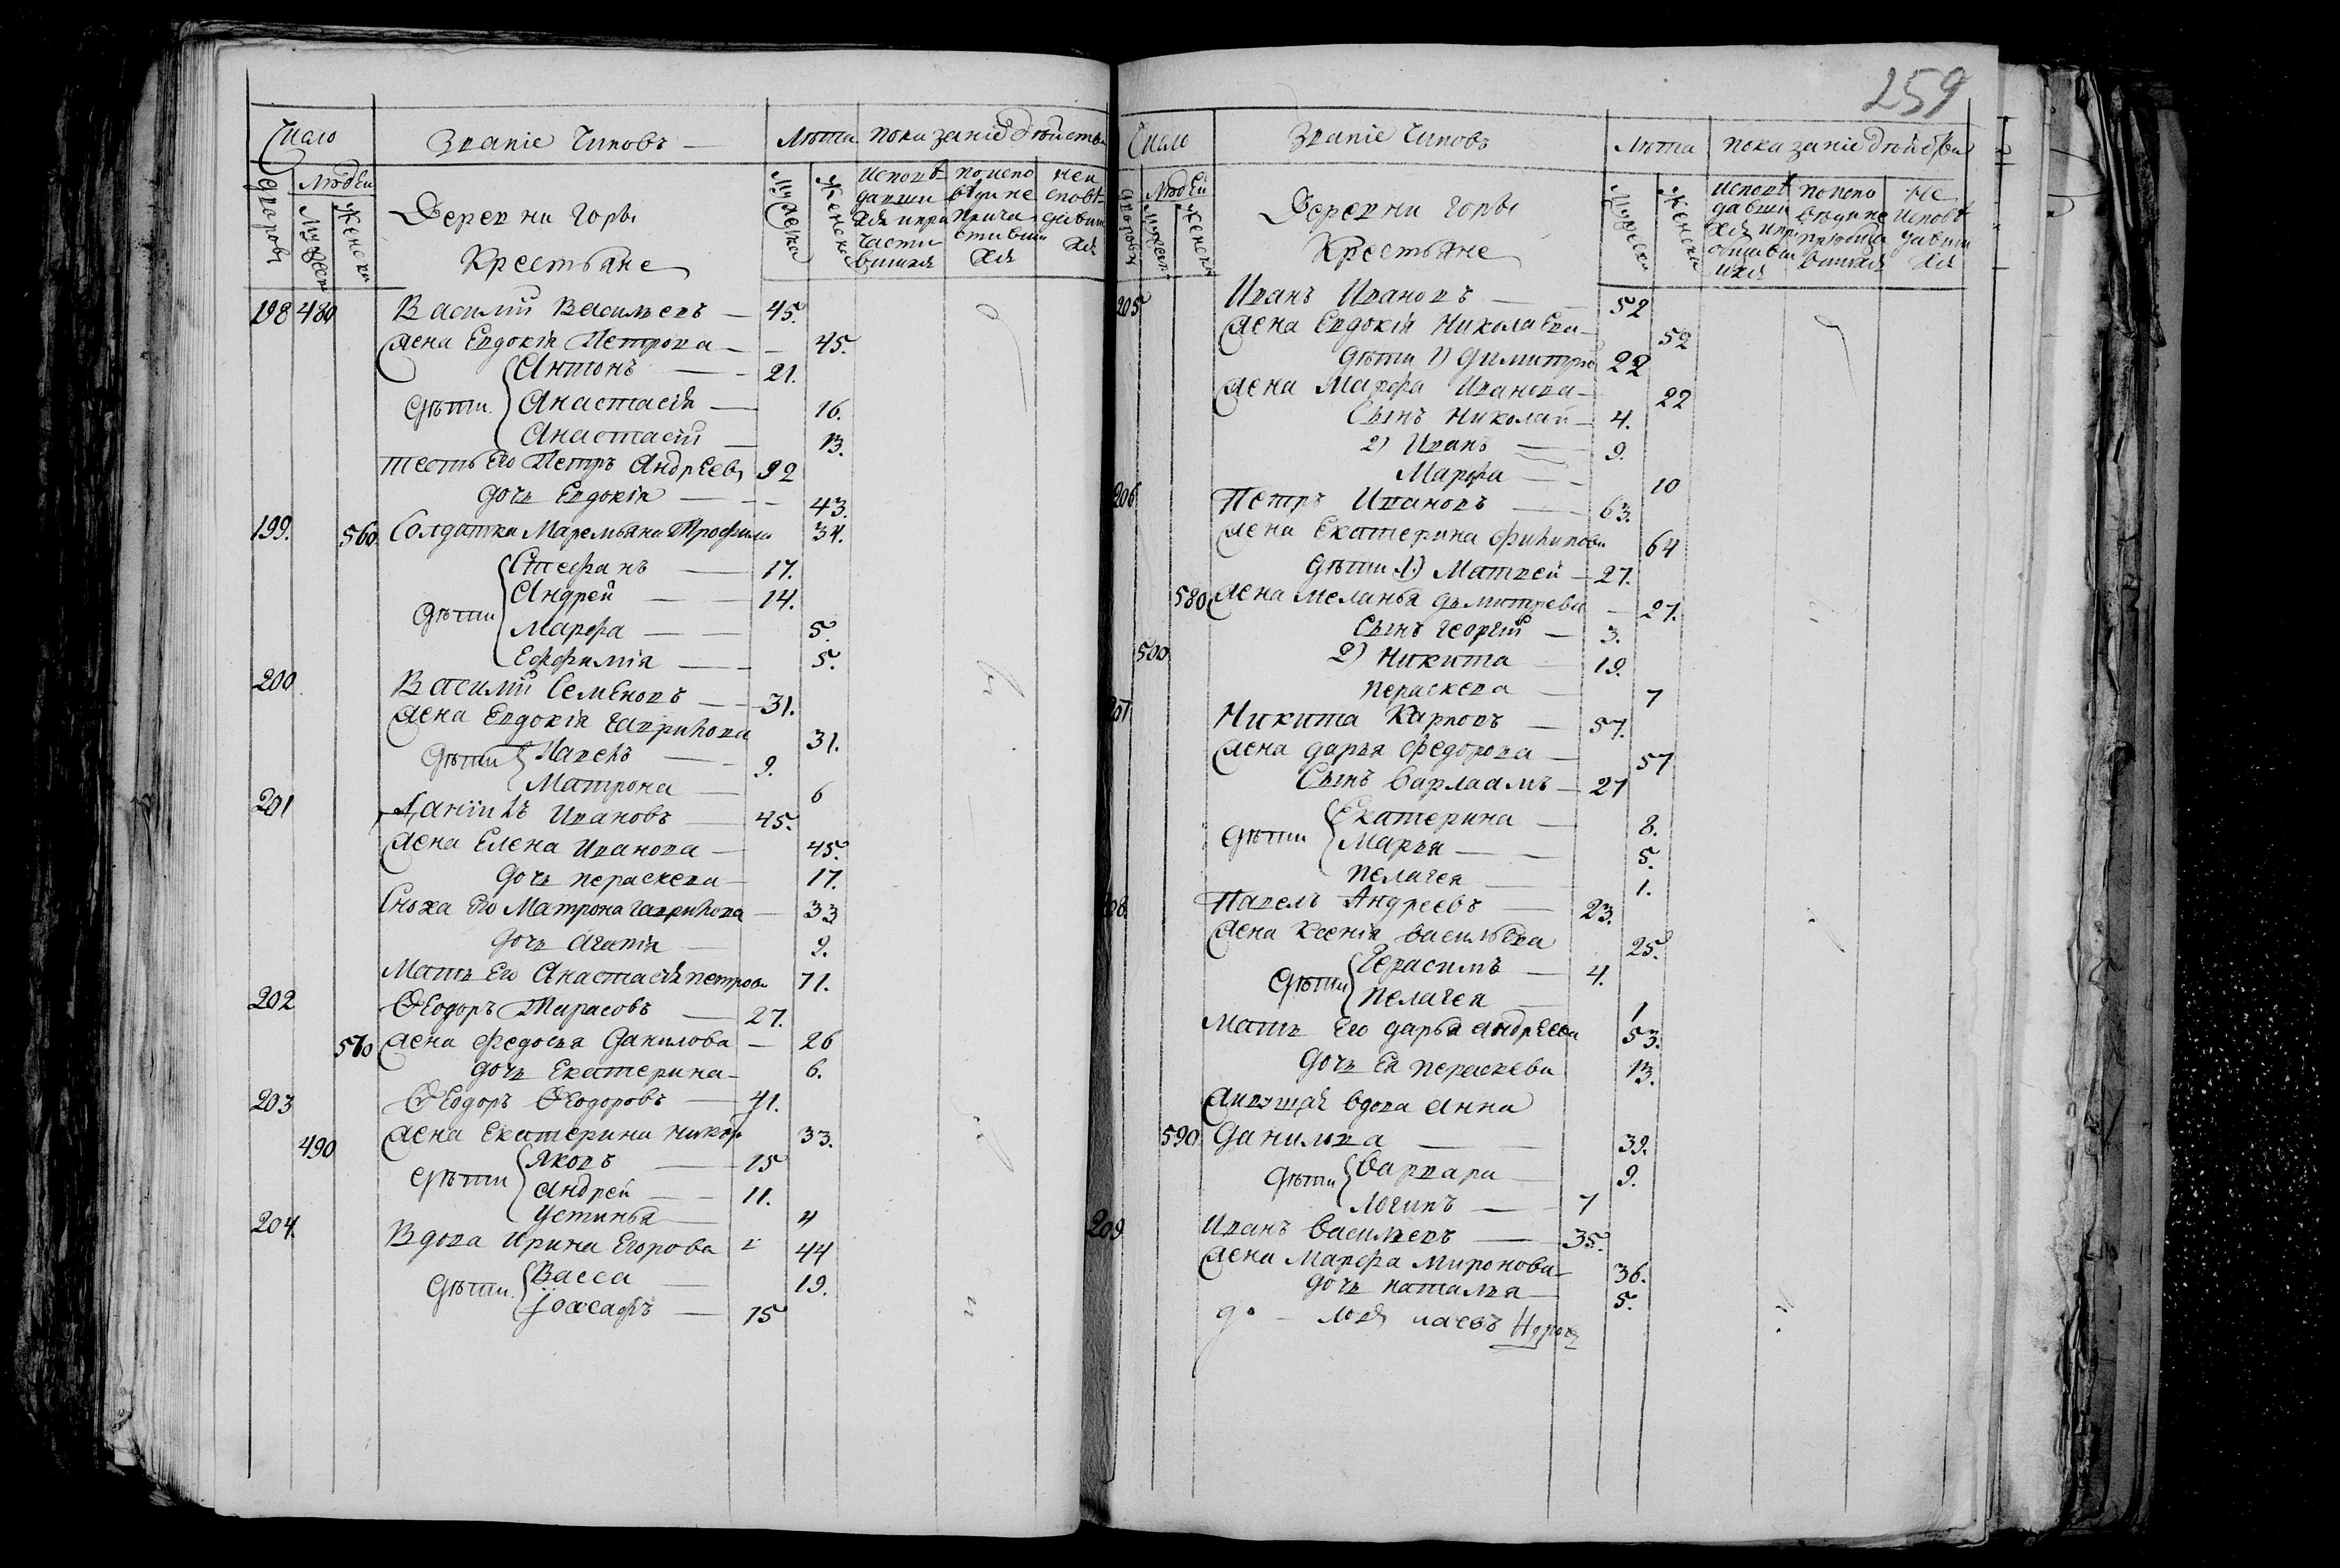 Число Званіе Чиновъ — Лѣта показаніе дѣйства
дворовъ Людей Мужеска Женска
Деревни Горы
Крестьяне
Мужеска Женска
Исповѣдавшихся и причастившихся
по исповѣди не причастившихся
не исповѣдавшихся
198 480 Василий Васильевъ — 45.
Жена Евдокія Петрова — 45.
Дѣти Антонъ — 21.
Анастасія — 16.
Анастасіи — 13.
тесть Его Петръ Андреевъ 92
дочь Евдокія — 43.
199. 560 Солдатка Маремьяна Трофимо 34.
Дѣти Стефанъ — 17.
Андрей — 14.
Марфа — 5.
Еффимія — 5.
200 Василий Семеновъ — 31.
Жена Евдокія Гаврилова 31.
Дѣти Павелъ — 9.
Матрона — 6
201 Даніилъ Ивановъ — 45.
Жена Елена Иванова — 45.
дочь Пераскева — 17.
Сноха Его Матрона Гаврилова — 33
дочь Агапія — 9.
Мать Его Анастасія Петров 71.
202 Ѳеодоръ Тарасовъ — 27.
570 Жена Федосья Данилова — 26
дочь Екатерина — 6.
203 Ѳеодоръ Ѳеодоровъ — 41.
490 Жена Екатерина Никифо 33.
Дѣти Яковъ — 15
Андрей — 11.
Устинья — 4
204. Вдова Ирина Егорова 44
Дѣти Васса — 19.
Іоасафъ — 15
259
Число Званіе Чиновъ Лѣта показаніе дѣйства
дворовъ Людей Мужеска Женска
Деревни Горы
Крестьяне
Мужеска Женска
205 Иванъ Ивановъ — 52
Жена Евдокія Николаева — 52
Дѣти 1) Димитрій 22
Жена Марфа Иванова — 22
Сынъ Николай — 4.
2) Иванъ — 9.
Марфа — 10
206 Петръ Ивановъ — 63.
Жена Екатерина Филипова 64
Дѣти 1.) Матвей — 27.
580 Жена Меланья Дмитрева — 27.
Сынъ Георгій — 3.
500 2) Никита 19.
Пераскева — 7
207 Никита Карповъ — 57.
Жена Дарья Федорова — 57
Сынъ Варлаамъ — 27
Дѣти Екатерина — 8.
Марья — 5.
Пелагея — 1.
208 Павелъ Андреевъ — 23.
Жена Ксенія Васильева 25.
Дѣти Герасимъ — 4.
Пелагея — 1
Мать Его Дарья Андреева 53.
Дочь Ея Пераскева 13.
Живущая вдова Анна
590 Данилова — 39.
Дѣти Варвара — 9.
Логинъ — 7
209 Иванъ Васильевъ — 35.
Жена Марфа Миронова — 36.
Дочь Наталья — 5.